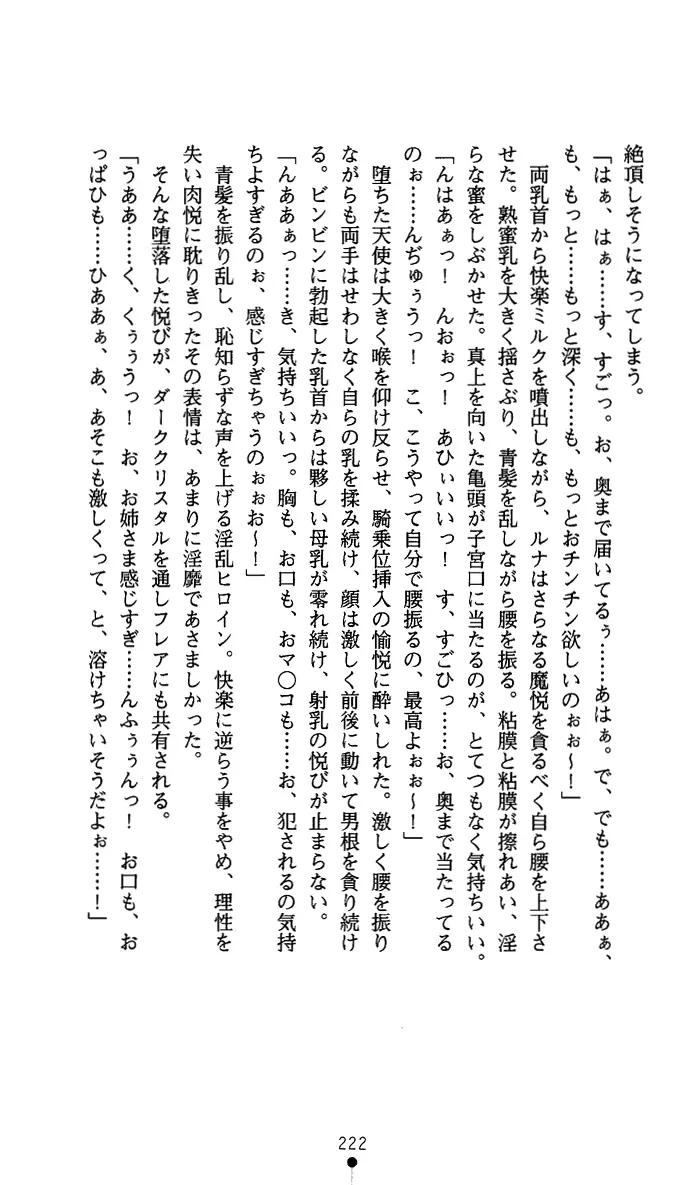 絶頂しそうになってしまう。
「はぁ、はぁ……す、すごっ。お、奥まで届いてるぅ……あはぁ。で、でも……ああぁ、
も、もっと……もっと深く……も、もっとおチンチン欲しいのぉぉ～！」
両乳首から快楽ミルクを噴出しながら、ルナはさらなる魔悦を貪るべく自ら腰を上下さ
せた。熟蜜乳を大きく揺さぶり、青髪を乱しながら腰を振る。粘膜と粘膜が擦れあい、淫
らな蜜をしぶかせた。真上を向いた亀頭が子宮口に当たるのが、とてつもなく気持ちいい。
「んはあぁっ！　んおぉっ！　あひぃいいいっ！　す、すごひっ……お、奥まで当たってる
のぉ……んぢゅぅうっ！　こ、こうやって自分で腰振るの、最高よぉぉ～！」
堕ちた天使は大きく喉を仰け反らせ、騎乗位挿入の愉悦に酔いしれた。激しく腰を振り
ながらも両手はせわしなく自らの乳を揉み続け、顔は激しく前後に動いて男根を貪り続け
る。ビンビンに勃起した乳首からは夥しい母乳が零れ続け、射乳の悦びが止まらない。
「んああぁっ……き、気持ちいいっ。胸も、お口も、おマ〇コも……お、犯されるの気持
ちよすぎるのぉ、感じすぎちゃうのぉぉお～！」
青髪を振り乱し、恥知らずな声を上げる淫乱ヒロイン。快楽に逆らう事をやめ、理性を
失い肉悦に耽りきったその表情は、あまりに淫靡であさましかった。
そんな堕落した悦びが、ダーククリスタルを通しフレアにも共有される。
「うああ……く、くぅぅうっ！　お、お姉さま感じすぎ……んふぅぅんっ！　お口も、お
っぱひも……ひああぁ、あ、あそこも激しくって、と、溶けちゃいそうだよぉ……！」
222